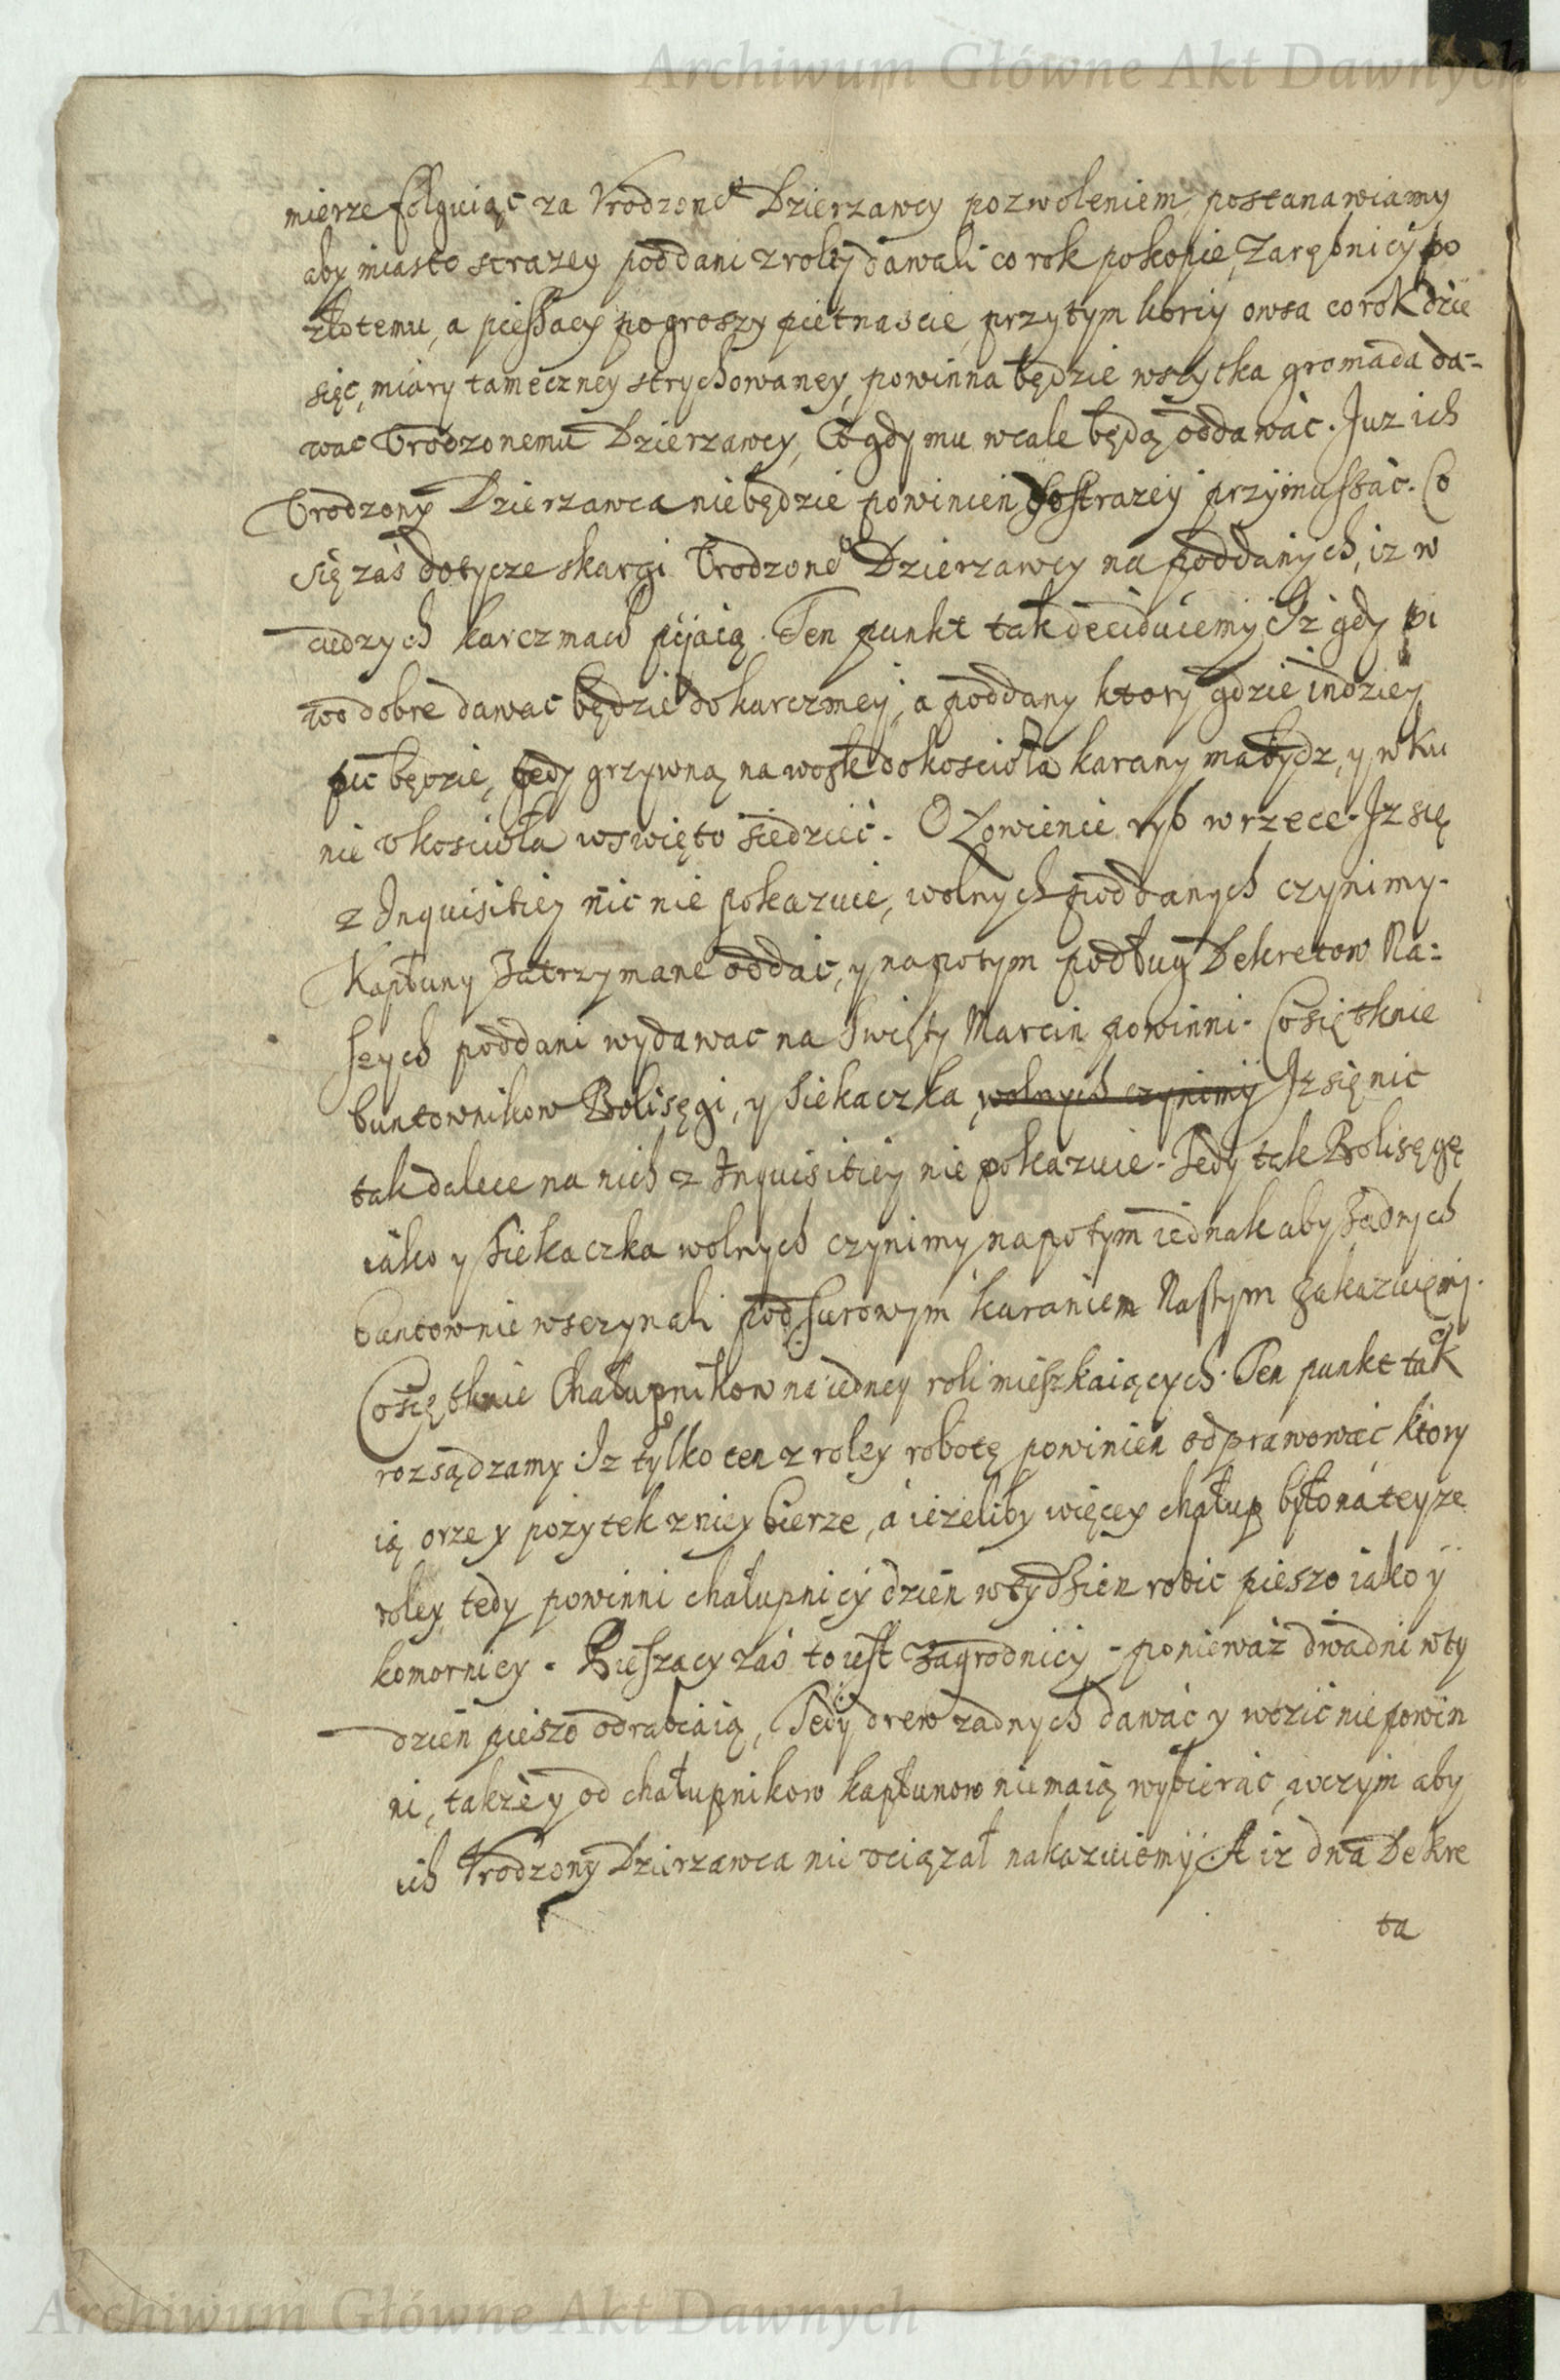 Archiwum Główne Akt Dawnych
mierze folguiąc za Vrodzone͡g Dzierzawcy pozwoleniem, postanawiamy
aby miasto strazey poddani z roley dawali co rok po kopie, Zarębnicy po
złotemu, a pieszacy po groszy pietnascie, przytym korcy owsa co rok dzie
sięc, miary tameczney strychowaney, powinna będzie wszytka gromada da-
wac Vrodzonemu Dzierzawcy, Co gdy mu wcale będą oddawać. Juz ich
Vrodzony Dzierzawca niebędzie powinien do strazey przymuszać. Co
się zaś dotycze skargi Vrodzone͡g Dzierzawcy na poddanych, iz w
cudzych karczmach pijaią. Ten punkt tak deciduiemy Iz gdy pi
wo dobre dawac będzie do karczmey, a poddany ktory gdzie indziey
pic będzie, tedy grzywną na wosk do kościoła karany ma bydz, y w ku
nie v kościoła w swięto siedzieć. O Łowienie ryb w rzece. Iz się
z Inquisitiey nic nie pokazuie, wolnych poddanych czynimy.
Kapłuny Zatrzymane oddać, y napotym podług Dekretow Na-
szych poddani wydawac na Swięty Marcin powinni. Co się tknie
buntownikow Bolisęgi, y Siekaczka, wolnych czynimy Iz się nic
tak dalece na nich z Inquisitiey nie pokazuie. Tedy tak Bolisęgę
iako y Siekaczka wolnych czynimy napotym iednak aby żadnych
buntow nie wsczynali pod surowym karaniem Naszym zakazuiemy.
Co się tknie Chałupnikow na iedney roli mieszkaiących. Ten punkt tak
rozsądzamy Iz tylko ten z roley robotę powinien odprawować ktory
ią orze y pożytek z niey bierze, á ieżeliby więcey chałup było ná teyze
roley tedy powinni chałupnicy dzień w tydzien robic pieszo iako y
komornicy. Pieszacy zaś to iest zagrodnicy - ponieważ dwa dni w ty
dzień pieszo odrabiaią, Tedy drew żadnych dawáć y wozić nie powin
ni, także y od chałupnikow kapłunow nie maią wybierać, wczym aby
ich Vrodzony Dzierzawca nie vciązał nakazuiemy. A iz dwa Dekre
ta
Archiwum Główne Akt Dawnych